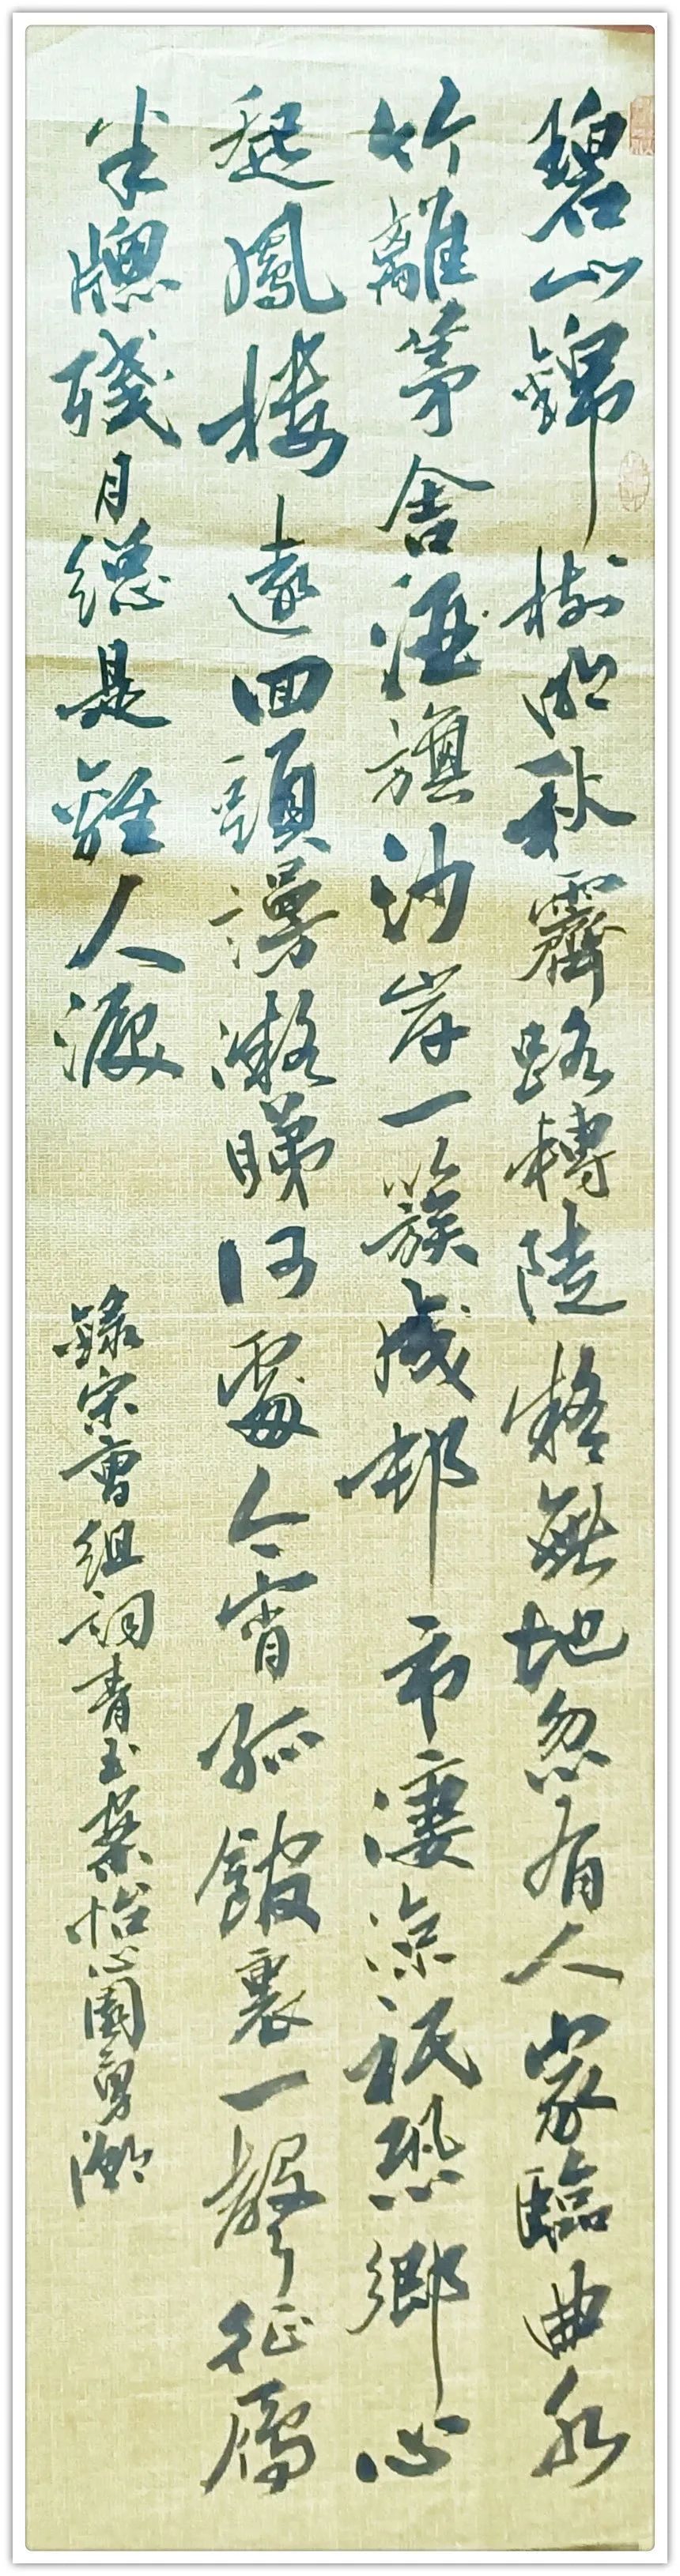 碧山錦樹明秋霽路轉陡疑無地忽有人家臨曲水
竹離茅舍酒旗沙岸一簇成邨市淒涼祇恐鄉心
起鳳樓遠回頭謾凝睇何處今宵孤館裏一聲征鴈
半牕殘月總是離人淚
錄宋曹組詞青玉案怡心園勇潮